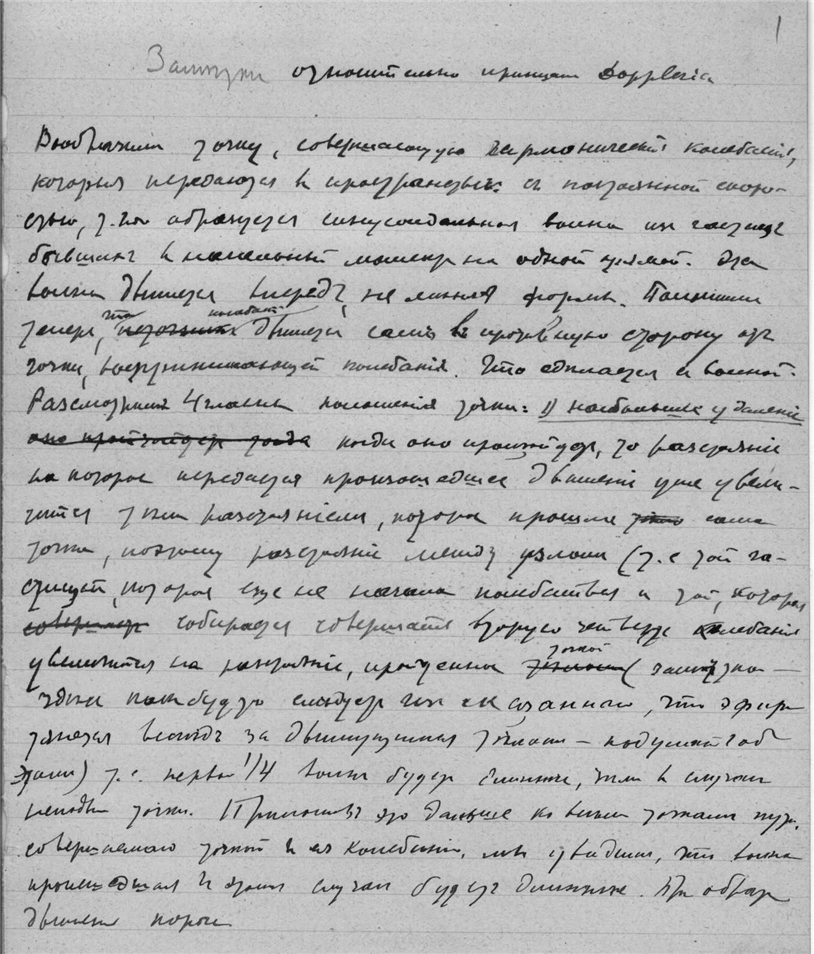 1
Заметки относительно принципа Dopplera
Вообразим точку, совершающую гармоническія колебанія,
которыя передаются въ пространствѣ съ постоянной скоро-
стью, т. что образуется синусоидальная волна изъ частицъ
бывшихъ въ начальный моментъ на одной прямой. Эта
волна движется впередъ, не мѣняя формы.
теперь, что движется сама въ противную сторону отъ
точки, воспринимающей колебанія. Что сдѣлается съ волной.
Разсмотримъ 4 главн положенія точки: 1) наибольшее удаленіе
когда оно произойдетъ, то разстояніе
на которое передается происшедшее движеніе уже увели-
чится тѣмъ разстояніемъ, которое прошла сама
точка, поэтому разстояніе между узломъ (т. е той ча-
стицей, которая еще не начала колебаться и той, которая
собирается совершать вторую четверть колебанія
увеличится на разстояніе, пройденное точкой (
слѣдуетъ изъ сказаннаго, что эфиръ
за движущимися тѣлами – подумать объ
этомъ) т. е. первая 1/4 волны будетъ длиннѣе, чѣмъ въ случаѣ
неподв точки. это дальше ко всѣмъ точкамъ пути,
совершаемаго точкой въ ея колебаніи, мы увидимъ, что волна
происшедшая въ этомъ случаѣ будетъ длиннѣе. При обратн
движеніи короче